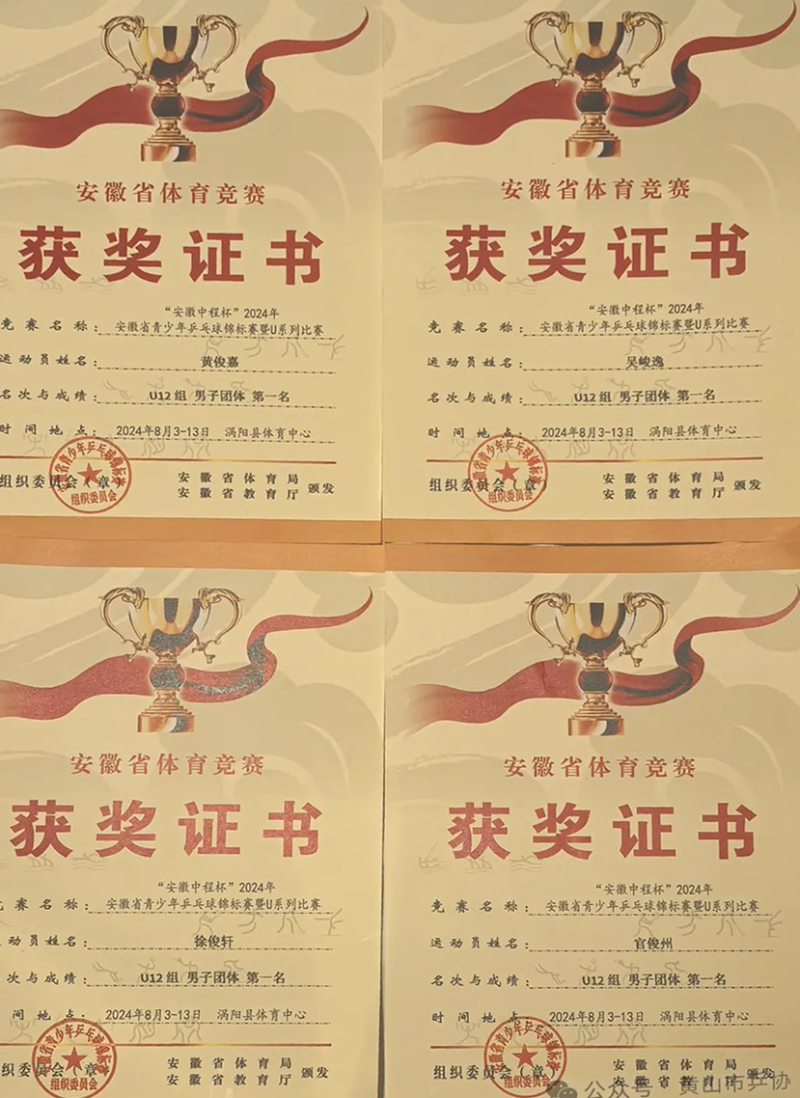 安徽省体育竞赛
获奖证书
“安徽中程杯”2024年
竞赛名称：安徽省青少年乒乓球锦标赛暨U系列比赛
运动员姓名：黄俊嘉
名次与成绩：U12组 男子团体 第一名
时间地点：2024年8月3-13日 涡阳县体育中心
组织委员会（章）
安徽省体育局
安徽省教育厅 颁发
组织委员会
安徽省体育竞赛
获奖证书
“安徽中程杯”2024年
竞赛名称：安徽省青少年乒乓球锦标赛暨U系列比赛
运动员姓名：吴峻逸
名次与成绩：U12组 男子团体 第一名
时间地点：2024年8月3-13日 涡阳县体育中心
组织委员会（章）
安徽省体育局
安徽省教育厅 颁发
组织委员会
安徽省体育竞赛
获奖证书
“安徽中程杯”2024年
竞赛名称：安徽省青少年乒乓球锦标赛暨U系列比赛
动员姓名：徐俊轩
次与成绩：U12组 男子团体 第一名
间地点：2024年8月3-13日 涡阳县体育中心
织委员会（章）
安徽省体育局
安徽省教育厅 颁发
组织委员会
安徽省体育竞赛
获奖证书
“安徽中程杯”2024年
竞赛名称：安徽省青少年乒乓球锦标赛暨U系列比赛
运动员姓名：官俊州
名次与成绩：U12组 男子团体 第一名
时间地点：2024年8月3-13日 涡阳县体育中心
组织委员会（章）
安徽省体育局
安徽省教育厅 颁发
组织委员会
公众号 黄山市乒协